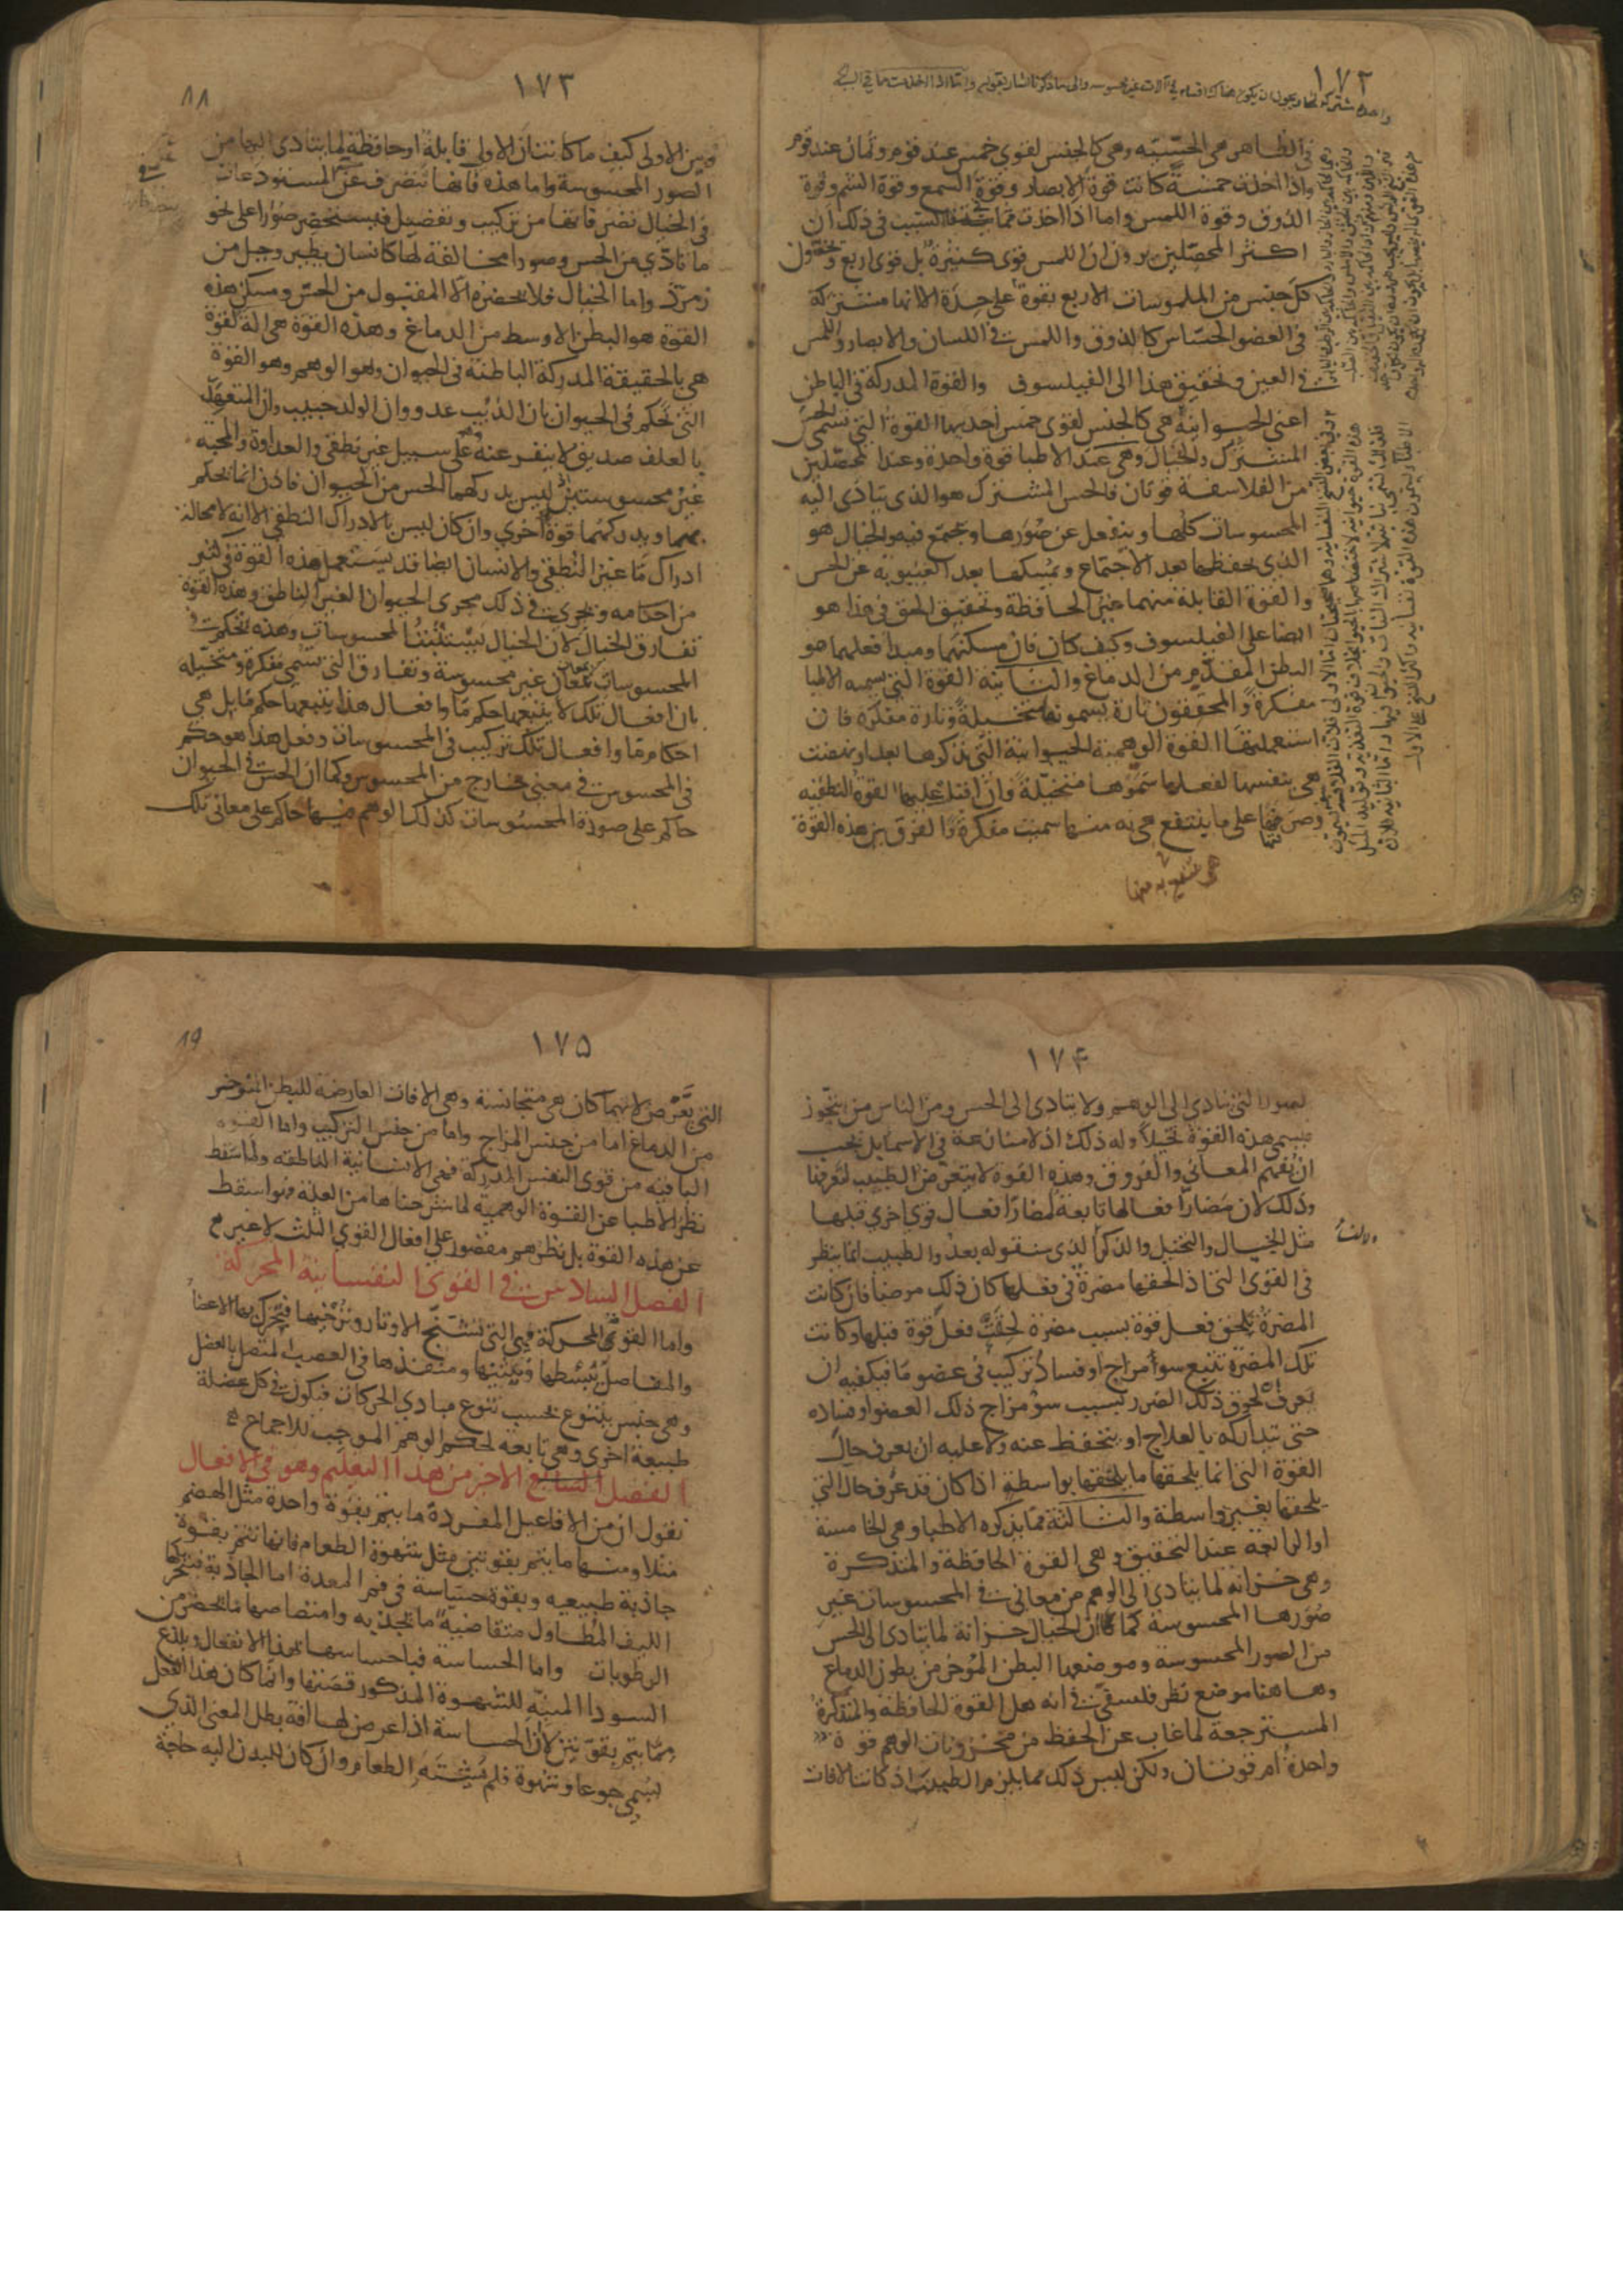 ١٧٢
في الظاهر هي الحسّيّه وهي كالجنس لقوى خمس عند قوم وثمان عند قوم
واذا اخذت خمسةً كانت قوة الابصار وقوة السمع وقوة الشم وقوة
الذوق وقوة اللمس واما اذا اخذت ثمانية فالسبب في ذلك ان
اكثر المحصّلين يرون ان اللمس قوى كثيرة بل قوى اربع ويخصّون
كل جنس من الملموسات الاربع بقوة على حدة الا انها مشتركة
في العضو الحسّاس كالذوق واللمس في اللسان والابصار واللمس
في العين وتحقيق هذا الى الفيلسوف والقوة المدركة في الباطن
اعني الحيوانية هي كالجنس لقوى خمس احديها القوة التي تسمى الحس
المشترك والخيال وهي عند الاطبا قوة واحدة وعند المحصّلين
من الفلاسفة قوتان فالحس المشترك هو الذي يتادى اليه
المحسوسات كلها وينفعل عن صورها ويجتمع فيه والخيال هو
الذي يحفظها بعد الاجتماع ويمسكها بعد الغيبوبة عن الحس
والقوة القابلة منهما غير الحافظة وتحقيق الحق في هذا هو
ايضا على الفيلسوف وكيف كان فان مسكنهما ومبدا فعلهما هو
البطن المقدم من الدماغ والثانية القوة التي يسميه الاطبا
مفكرة والمحققون تارة يسمونها متخيلة وتارة مفكرة فان
استعملتها القوة الوهمية الحيوانية التي نذكرها بعد او نهضت
هي بنفسها لفعلها سمّوها متخيّلة وان اقبل عليها القوة النطقيه
وصرفتها على ما ينتفع هي به منها سميت مفكرة والفرق بين هذه القوة
هي ينتفع به منها
١٧٣
وبين الاولى كيف ما كانت ان الاولى قابلة او حافظة لما يتادى اليها من
الصور المحسوسة واما هذه فانها تتصرف على المستودعات
في الخيال تصرفاتها من تركيب وتفصيل فيستحضر صورا على نحو
ما تادّي من الحس وصورا مخالفة لها كانسان يطير وجبل من
زمرّد واما الخيال فلا يحضره الا المقبول من الحسّ ومسكن هذه
القوة هو البطن الاوسط من الدماغ وهذه القوة هي الة لقوة
هي بالحقيقة المدركة الباطنة في الحيوان وهو الوهم وهو القوة
التي تحكم في الحيوان بان الذيب عدو وان الولد حبيب وان المتعهّد
بالعلف صديق لا ينفر عنه على سبيل غير نطقي والعداوة والمحبه
غير محسوستين ليس يدركهما الحس من الحيوان فاذن انما يحكم
بهما ويدركهما قوة اخري وان كان ليس بالادراك النطقي الا انه لا محالة
ادراك ما غير النطقي والانسان ايضا قد يستعمل هذه القوة في كثير
من احكامه ويجري في ذلك مجرى الحيوان الغير الناطق وهذه القوة
تفارق الخيال لان الخيال يستثبت المحسوسات وهذه تحكم في
المحسوسات بمعان غير محسوسة وتفارق التي تسمي مفكرة ومتخيّله
بان افعال تلك لا يتبعها حكم مّا وافعال هذا يتبعها حكم مّا بل هي
احكام مّا وافعال تلك تركيب في المحسوسات وفعل هذا هو حكم
في المحسوس في معنى خارج من المحسوس وكما ان الحسّ في الحيوان
حاكم على صورة المحسوسات كذلك الوهم فيها حاكم على معاني تلك
١٧٤
لصور التي تتادي الى الوهم ولا يتادى الى الحس ومن الناس من يتجّوز
ويسمي هذه القوة تخيّلا وله ذلك اذ لا منازعة في الاسما بل يجب
ان يفهم المعاني والفروق وهذه القوة لا يتعرض الطبيب لتعرفها
وذلك لان مضارّ افعالها تابعة لمضارّ افعال قوى اخري قبلها
مثل الخيال والتخيل والذكر الذي سنقوله بعد والطبيب انما ينظر
في القوى التي اذا لحقها مضرة في فعلها كان ذلك مرضا فان كانت
المضرة يلحق فعل قوة بسبب مضرة لحقت فعل قوة قبلها وكانت
تلك المضرة تتبع سوأ مزاج او فساد تركيب في عضو مّا فيكفيه ان
يعرف لحوق ذلك الضرر بسبب سوء مزاج ذلك العضو او فساده
حتى يتداركه بالعلاج او يتحفظ عنه ولا عليه ان يعرف حال
القوة التي انما يلحقها ما يلحقها بواسطة اذا كان قد عرف حال التي
يلحقها بغير واسطة والثالثة مما يذكره الاطبا وهي الخامسة
او الرابعة عند التحقيق وهي القوة الحافظة والمتذكرة
وهي خزانه لما يتادى الى الوهم من معاني في المحسوسات غير
صورها المحسوسة كما ان الخيال خزانة لما يتادى الى الحس
من الصور المحسوسة وموضعها البطن المؤخر من بطون الدماغ
وهاهنا موضع نظر فلسفيّ في انه هل القوة الحافظة والمتذكرة
المسترجعة لما غاب عن الحفظ من مخزونات الوهم قوة
واحدة ام قوتان ولكن ليس ذلك مما يلزم الطبيب اذ كانت الافات
١٧٥
التي تعرض لايهما كان هي متجانسة وهي الافات العارضة للبطن المتوخر
من الدماغ اما من جنس المزاج واما من جنس التركيب واما القوه
الباقيه من قوى النفس المدركة فهي الانسانية الناطقه ولما سقط
نظر الاطبا عن القوة الوهمية لما شرحناها من العلة فهو اسقط
عن هذه القوة بل نظرهم مقصور على افعال القوي الثلث لا غير
الفصل السادس في القوى النفسانية المحركة
واما القوة المحركة فهي التي تشنّج الاوتار وترخيها فيتحرك بها الاعضا
والمفاصل تبسّطها وتثنيها ومنفذها في العصب المتصل بالعضل
وهي جنس يتنوع بحسب تنوع مبادي الحركات فيكون في كل عضلة
طبيعة اخرى وهي تابعة لحكم الوهم الموجب للاجماع
الفصل السابع الاخر من هذا التعليم وهو في الافعال
نقول ان من الافاعيل المفردة ما يتم بقوة واحدة مثل الهضم
مثلا ومنها ما يتم بقوتين مثل شهوة الطعام فانها تتم بقوة
جاذبة طبيعيه وبقوة حسّاسة في فم المعدة اما الجاذبة فبتحركها
الليف المطاول متقاضية ما تجذبه وامتصاصها ما يحضر من
الرطوبات واما الحساسة فباحساسها بهذا الانفعال وبلذع
السودا المنبّه للشهوة المذكور قصتها وانما كان هذا الفعل
مما يتم بقوتين لان الحساسة اذا عرض لها افة بطل المعنى الذي
يسمي جوعا وشهوة فلم يُشتَه الطعام وان كان للبدن اليه حاجة